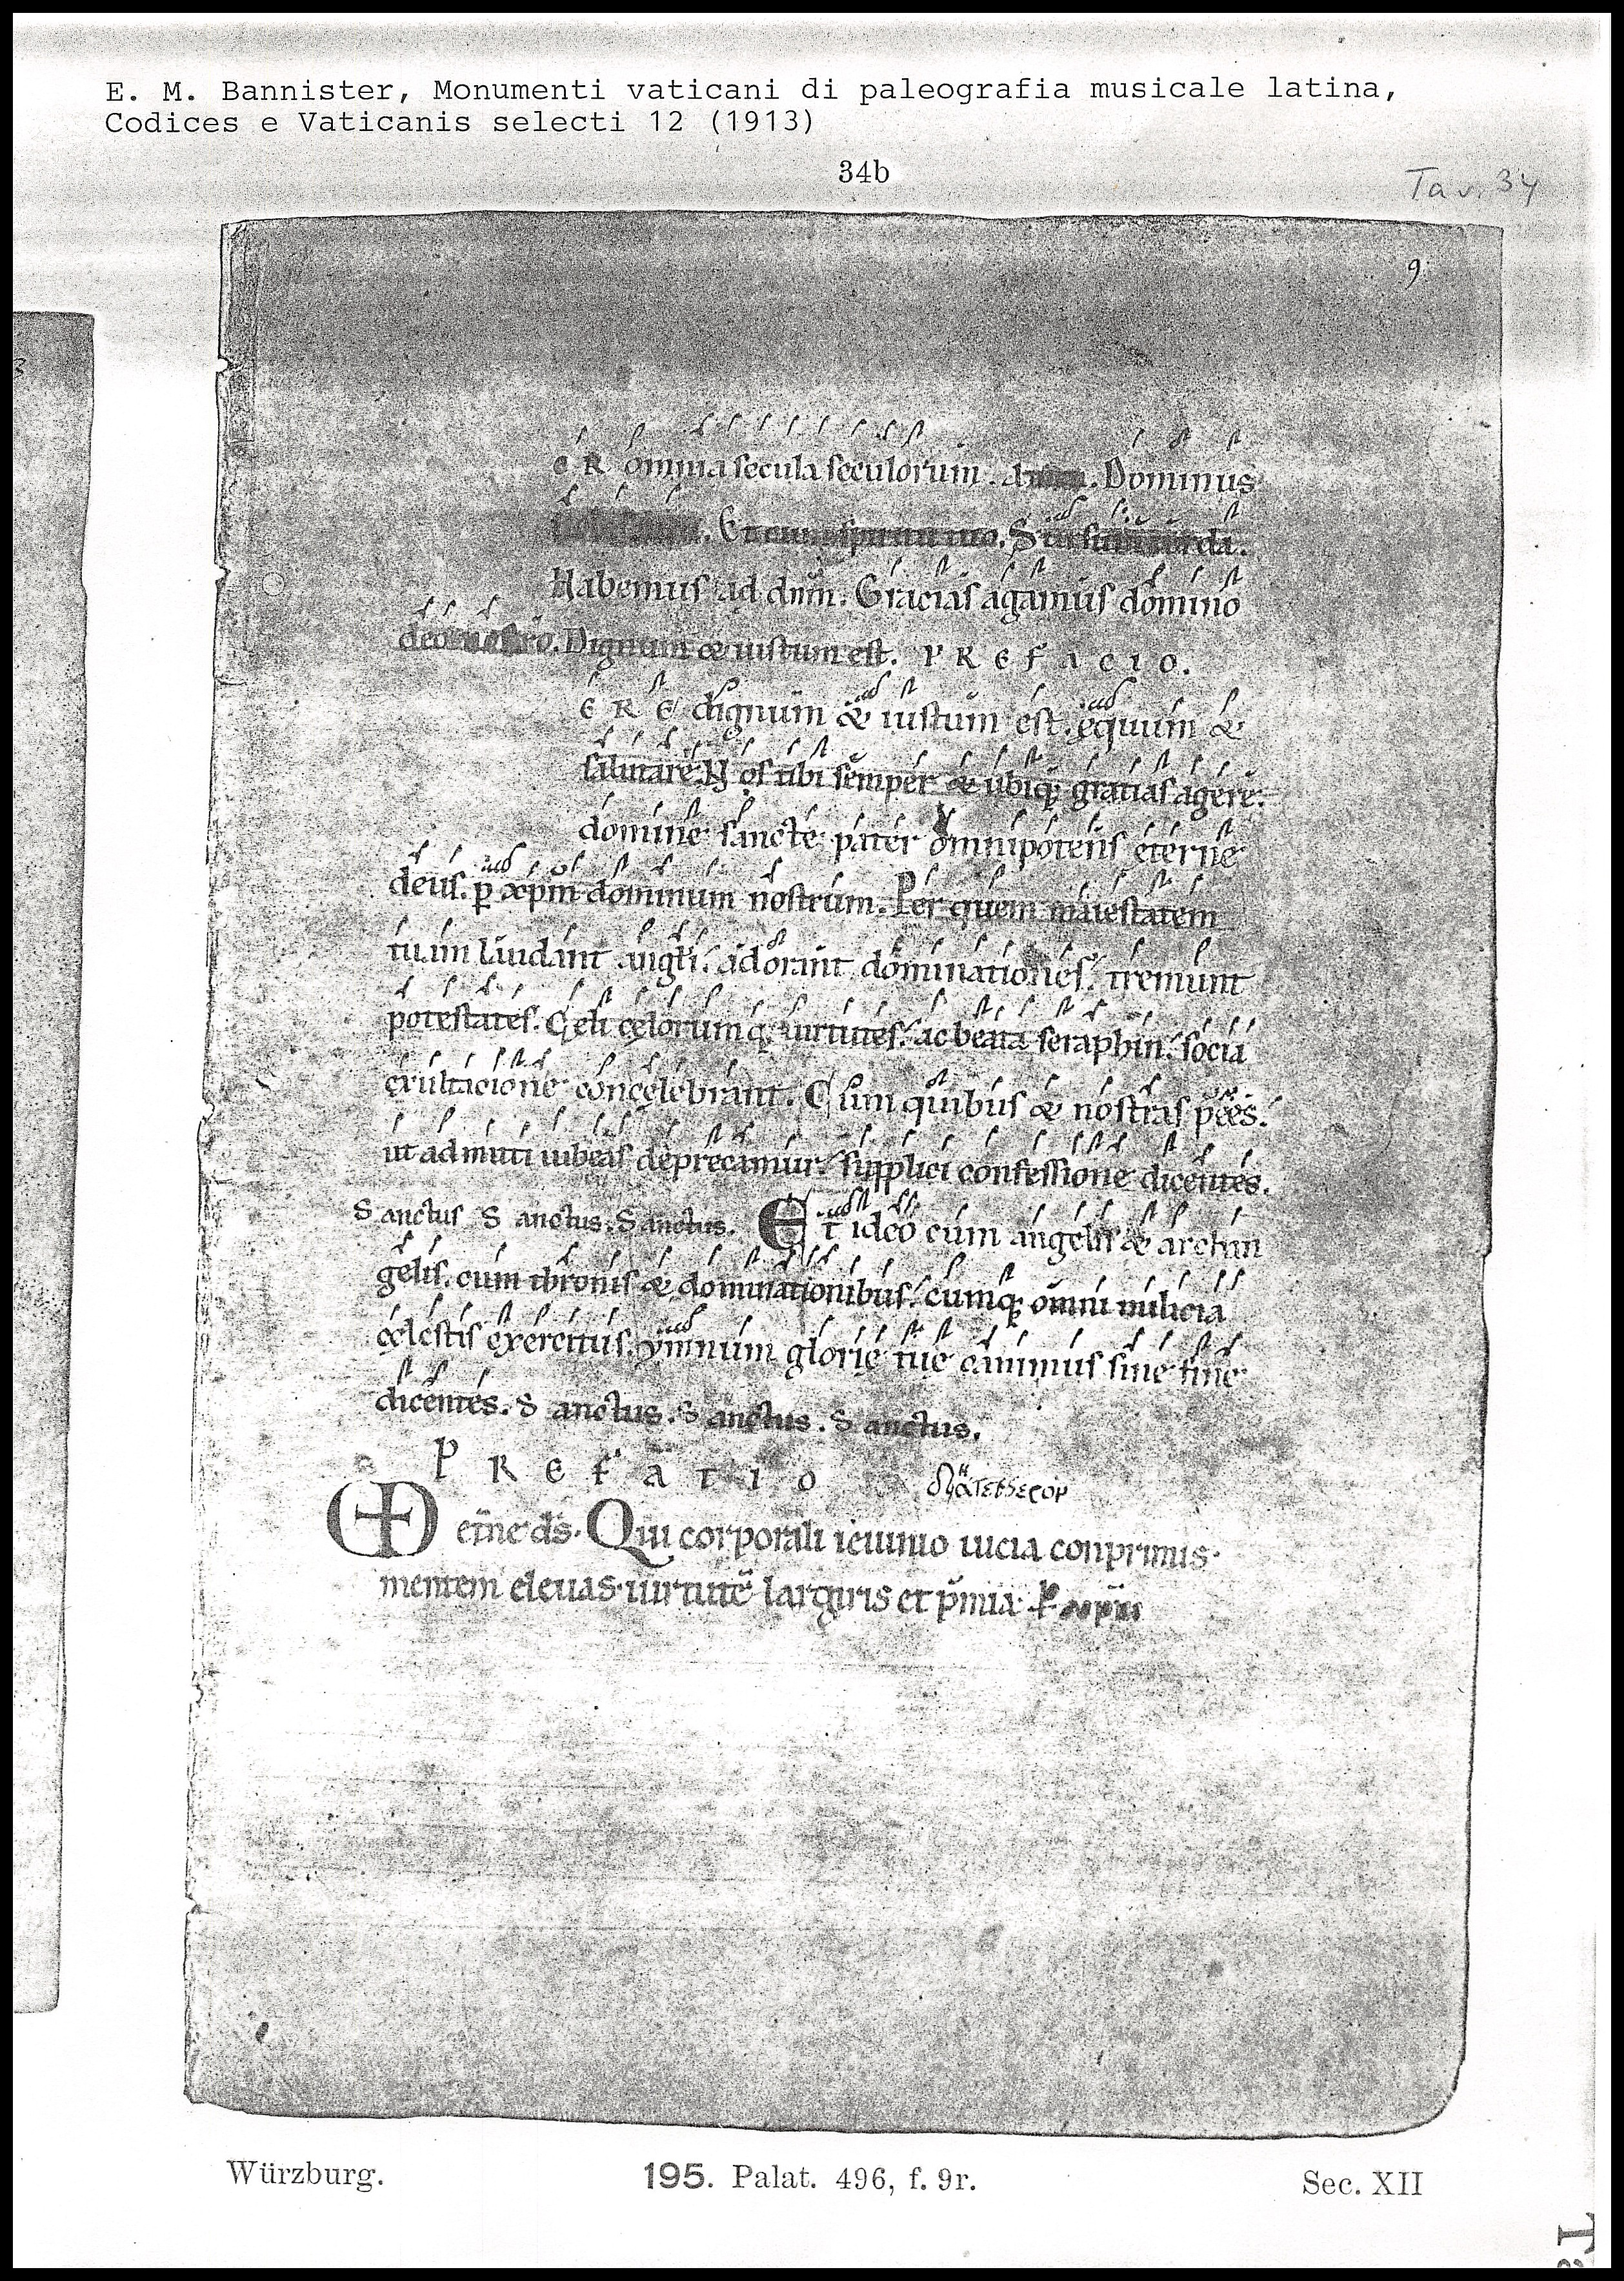 E. M. Bannister, Monumenti vaticani di paleografia musicale latina,
Codices e Vaticanis selecti 12 (1913)
34b
Tav. 34
9
ER omnia secula seculorum. Dominus
. Et cum spiritu tuo. Sursum corda.
Habemus ad dnm. Gracias agamus domino
deo nostro. Dignum & iustum est. PREFACIO.
ERE dignum & iustum est. equum &
salutare. Nos tibi semper & ubiq; gratias agere.
domine sancte pater omnipotens eterne
deus. p xpm dominum nostrum. Per quem maiestatem
tuam laudant angli. adorant dominationes. tremunt
potestates. Celi celorumq; uirtutes. ac beata seraphin. socia
exultacione concelebrant. Cum quibus & nostras
ut admitti iubeas deprecamur. supplici confessione dicentes.
Sanctus Sanctus. Sanctus. Et ideo cum angelis & archan
gelis. cum thronis & dominationibus. cumq; omni milicia
celestis exercitus. ymnum glorie tue canimus sine fine
dicentes. Sanctus. Sanctus. Sanctus.
PREFATIO
eterne ds. Qui corporali ieiunio uicia conprimis.
mentem eleuas. uirtute largiris et pmia.
Würzburg.
195. Palat. 496, f. 9r.
Sec. XII